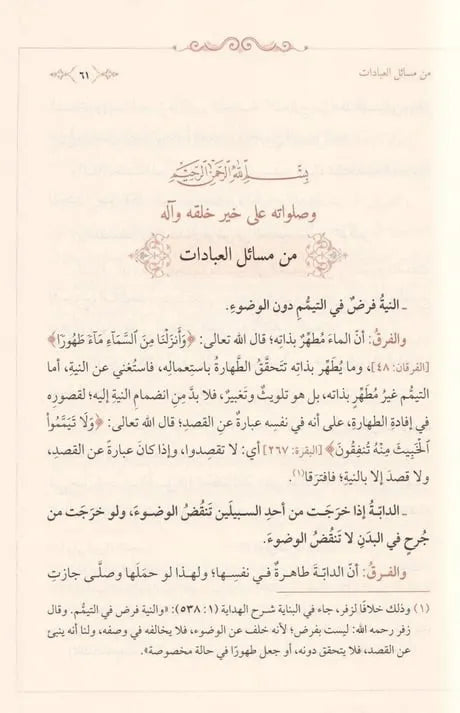 من مسائل العبادات
٦١
بِسْمِ اللهِ الرَّحْمَنِ الرَّحِيمِ
وصلواته على خير خلقه وآله
من مسائل العبادات
ـ النيةُ فرضٌ في التيمُّمِ دون الوضوءِ.
والفرقُ: أنَّ الماءَ مُطهِّرٌ بذاتِه؛ قال الله تعالى: ﴿وَأَنزَلْنَا مِنَ السَّمَاءِ مَاءً طَهُورًا﴾
[الفرقان: ٤٨]، وما يُطهِّر بذاته تتحقَّقُ الطَّهارةُ باستِعمالِه، فاستُغني عن النيةِ، أما
التيمُّم غيرُ مُطهِّرٍ بذاته، بل هو تلويثٌ وتَغبيرٌ، فلا بدَّ مِن انضمامِ النيةِ إليه؛ لقصورِه
في إفادةِ الطهارةِ، على أنه في نفسِه عبارةٌ عن القصدِ؛ قال الله تعالى: ﴿وَلَا تَيَمَّمُوا
الْخَبِيثَ مِنْهُ تُنفِقُونَ﴾ [البقرة: ٢٦٧] أي: لا تقصِدوا، وإذا كانَ عبارةً عن القصدِ،
ولا قصدَ إلا بالنيةِ؛ فافترَقا(١).
ـ الدابّةُ إذا خرَجَت من أحدِ السبيلَين تَنقُضُ الوضوءَ، ولو خرَجَت من
جُرحٍ في البدَنِ لا تَنقُضُ الوضوءَ.
والفرقُ: أنَّ الدابّةَ طاهرةٌ في نفسِها؛ ولهذا لو حمَلَها وصلَّى جازتِ
(١) وذلك خلافًا لزفر، جاء في البناية شرح الهداية (١: ٥٣٨): «والنية فرض في التيمُّم. وقال
زفر رحمه الله: ليست بفرض؛ لأنه خلف عن الوضوء، فلا يخالفه في وصفه، ولنا أنه ينبئ
عن القصد، فلا يتحقق دونه، أو جعل طهورًا في حالة مخصوصة».